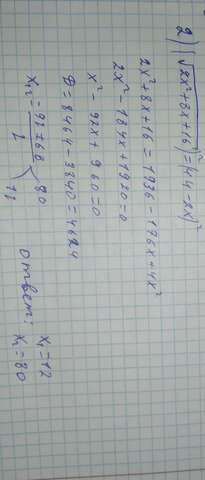 2) (√2x²+8x+16)²=(44-2x)²
2x²+8x+16=1936-176x+4x²
2x²-184x+1920=0
x²-92x+960=0
D=8464-3840=4624
x₁,₂=92±68/2 80
12
Ответ: x₁=12
x₂=80